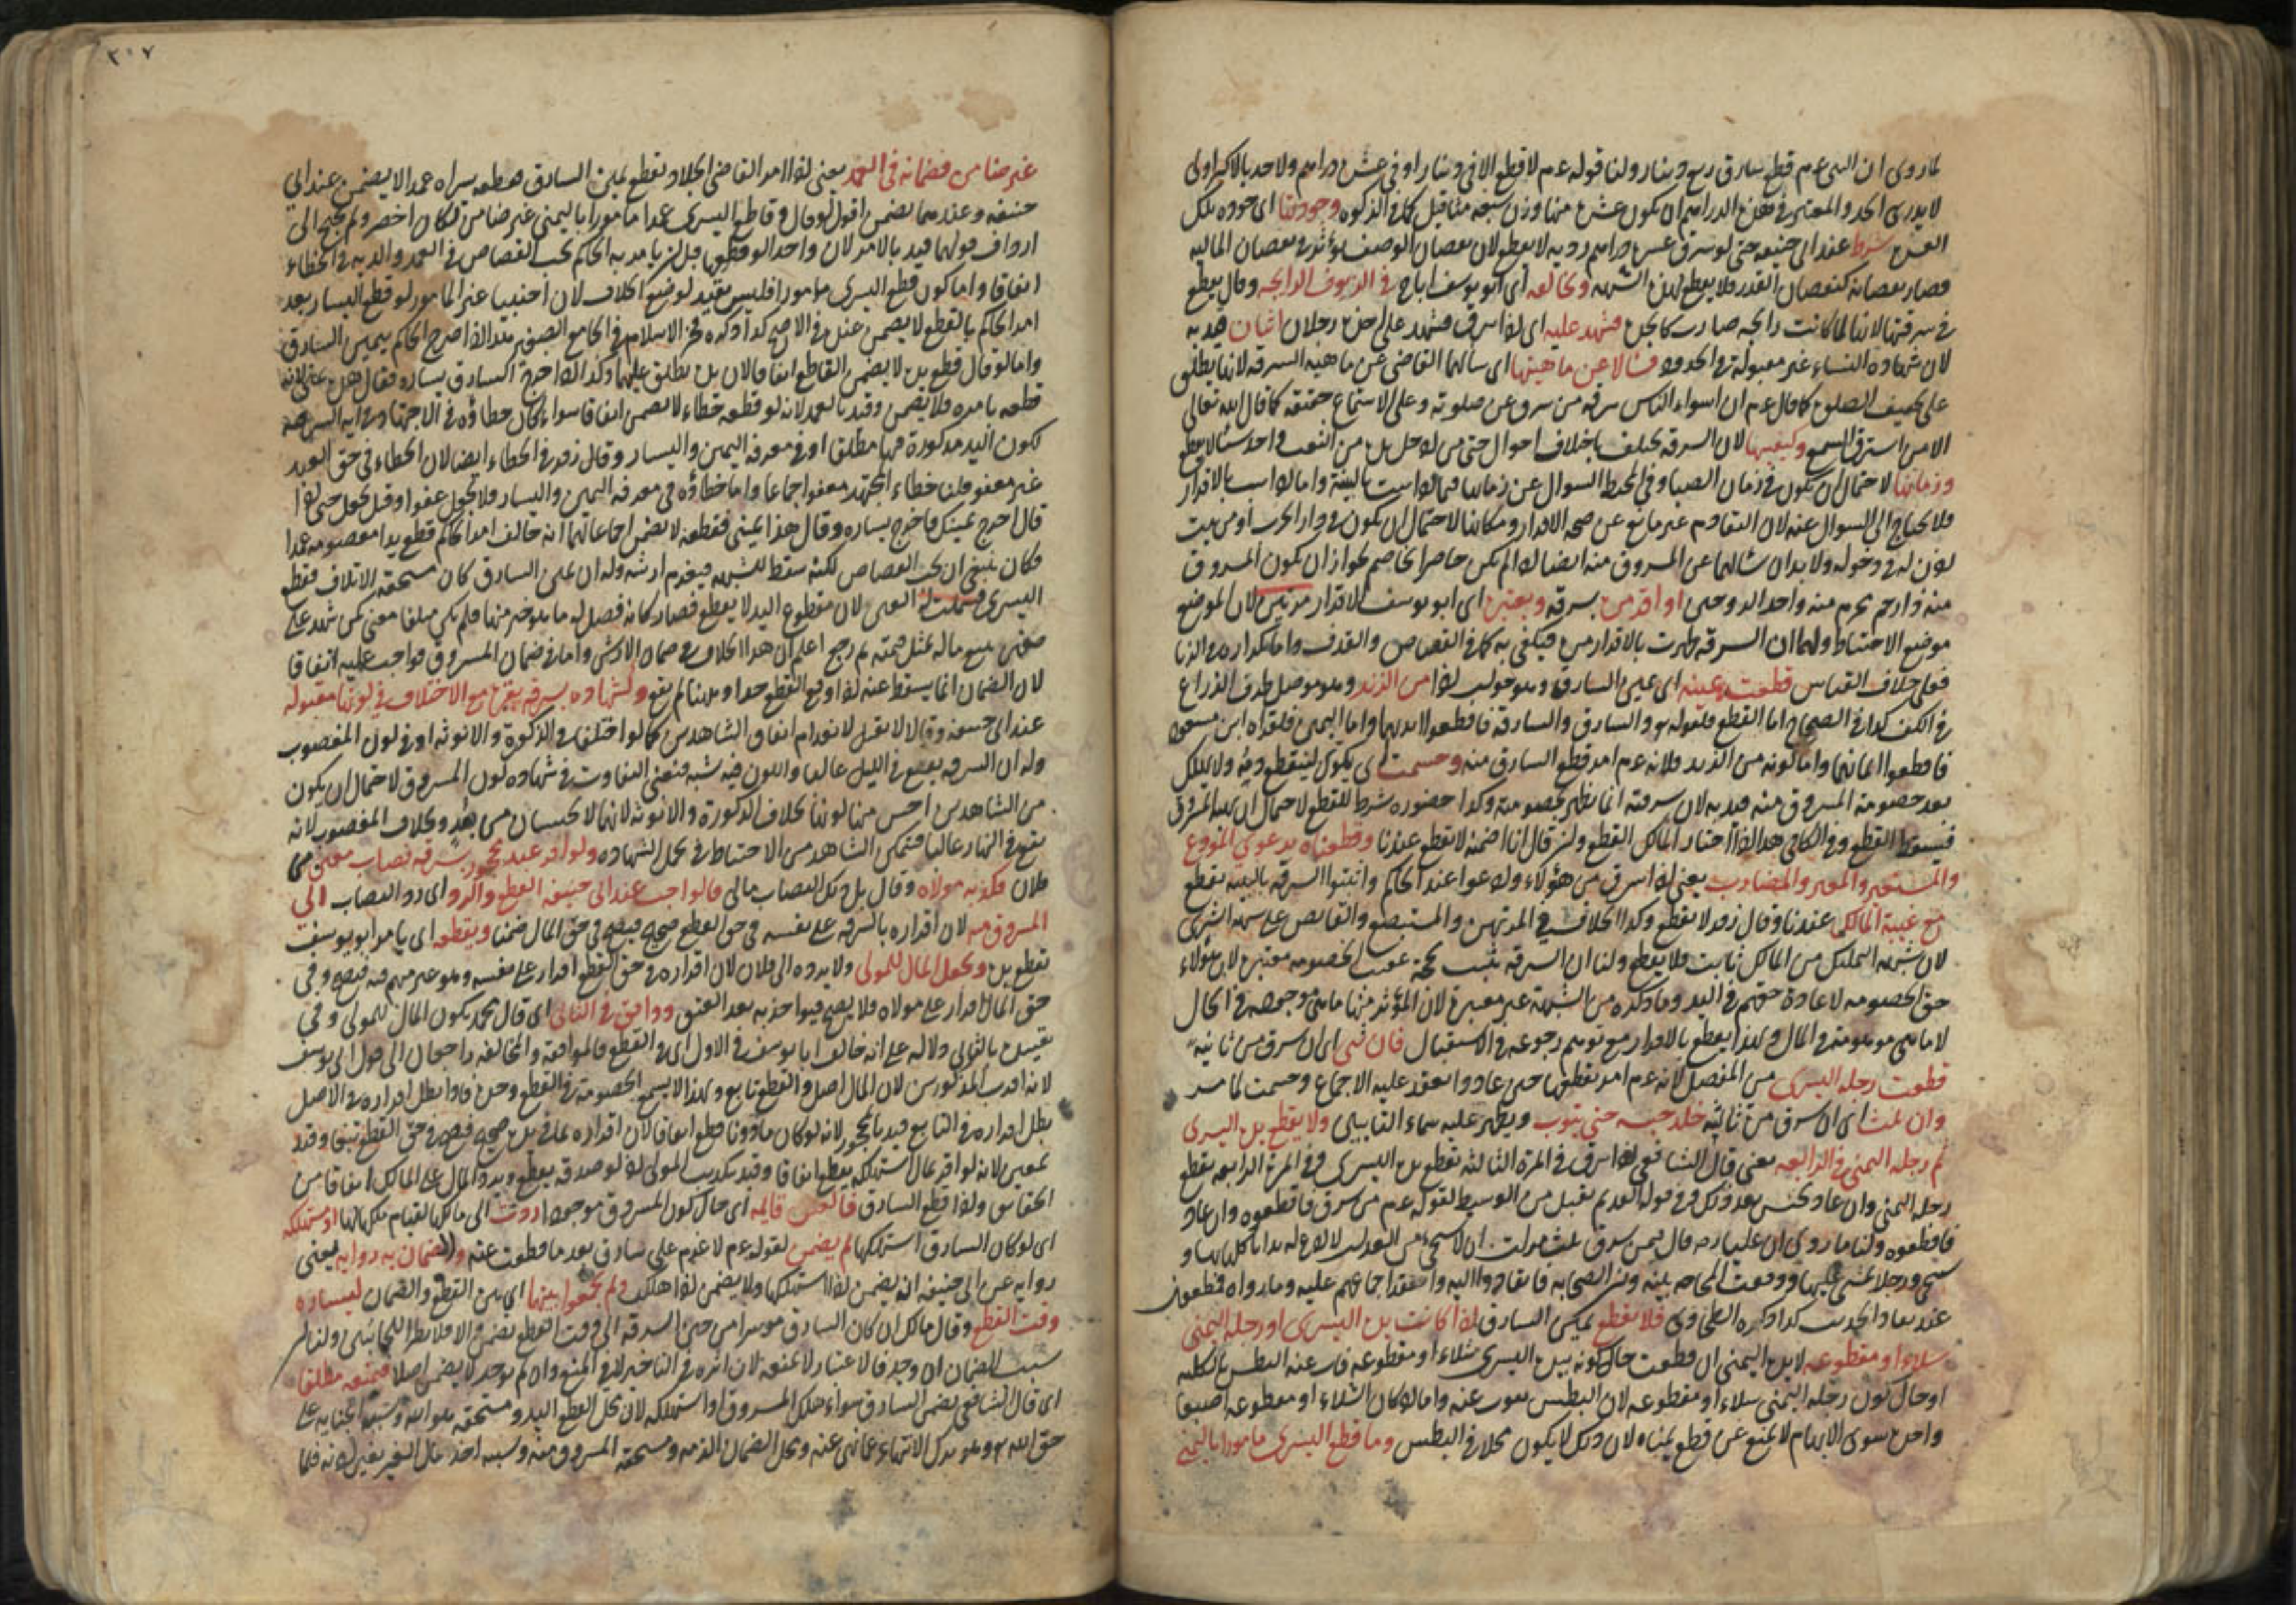 لما روى ان النبى عم قطع سارق ربع دينار ولنا قوله عم لا قطع الا فى دينار او فى عشرة دراهم ولاحد بالاكثر اولى
والمعتبر فى هذه الدراهم ان يكون عشرة منها وزن سبعة مثاقيل كما فى الزكوة وجودتها اى جودة تلك
شرط عند ابى حنيفه حتى لو سرق عشرة دراهم رديه لا يقطع لان نقصان الوصف يؤثر فى نقصان الماليه
فصار نقصانه كنقصان القدر فلا يقطع لهذه الشبهه وخالفه اى ابو يوسف اباح فى الزيوف الرايجه وقال يقطع
فى سرقتها لانها لما كانت رايجه صارت كالجياد فشهد عليه اى اذا سرق فشهد على اخذه رجلان اثنان قيد به
لان شهادة النساء غير مقبولة فى الحدود فسالا عن ماهيتها اى سألهما القاضى عن ماهية السرقه لانها يطلق
على الصلوة كما قال عم ان اسواء الناس سرقه من سرق عن صلوته وعلى الاستماع خفية كما قال الله تعالى
الا من استرق السمع وكيفيتها لان السرقه يختلف باختلاف احوال حتى من ادخل يده من النقب واخذ شيئا لا يقطع
وزمانها لاحتمال ان يكون فى زمان الصبا وفى المحيط السوال عن زمانها فيما اذا ثبت بالبينة واما اذا ثبت بالاقرار
فلا يحتاج الى السوال عنه لان التقادم غير مانع عن صحة الاقرار ومكانها لاحتمال ان يكون فى دار الحرب او من بيت
اذن له فى دخوله ولا بد ان يسألهما عن المسروق منه ايضا اذا لم يكن حاضرا يخاصم لجواز ان يكون المسروق
منه ذا رحم محرم منه او احد الزوجين او اقر مرة بسرقه ويعتبره اى ابو يوسف الاقرار مرتين لان الموضع
موضع الاحتياط ولهما ان السرقه ظهرت بالاقرار مرة فيكتفى به كما فى القصاص والقذف واما تكراره فى الزنا
فعلى خلاف القياس قطعت يمينه اى يمين السارق وهو جواب اذا من الزند وهو موصل طرف الذراع
فى الكف كذا فى الصحاح اما القطع فلقوله تعالى والسارق والسارقة فاقطعوا ايديهما واما اليمين فلقراءة ابن مسعود
فاقطعوا ايمانهما واما كونه من الزند فلانه عم امر بقطع السارق منه وحسمت اى يكوى لينقطع دمه ولا يهلك
بعد خصومة المسروق منه قيد به لان سرقته انما تظهر بخصومته وكذا حضوره شرط للقطع لاحتمال ان يهبه المسروق
فيسقط القطع وفى الكافى هذا اذا اختار المالك القطع وان قال انا اضمنه لا يقطع عندنا وقطعناه بدعوى المودع
والمستعير والمعير والمضارب يعنى اذا سرق من هؤلاء وادعوا عند الحاكم واثبتوا السرقه بالبينه يقطع
مع غيبة المالك عندنا وقال زفر لا يقطع وكذا الخلاف فى المرتهن والمستبضع والقابض على سوم الشرى
لان شبهة التمليك من المالك ثابت فلا يقطع ولنا ان السرقه ثبت بحجة عقيب خصومه معتبرة لان هؤلاء
حق الخصومه لاعادة حقهم فى اليد وما ذكره من الشبهة غير معتبرة لان المؤثر منها ما هى موجوده فى الحال
لا ما هى موهومة فى المال ولهذا يقطع بالاقرار مع توهم رجوعه فى الاستقبال فان ثنى اى ان سرق مرة ثانيه
قطعت رجله اليسرى من المفصل لانه عم امر بقطعها حين عاد وانعقد عليه الاجماع وحسمت لما مر
وان ثلث اى ان سرق مرة ثالثة خلد حبسه حتى يتوب ويظهر عليه سماء التائبين ولا يقطع يده اليسرى
ثم رجله اليمنى فى الرابعه يعنى قال الشافعى اذا سرق فى المرة الثالثة تقطع يده اليسرى وفى المرة الرابعه يقطع
رجله اليمنى وان عاد يحبس بعد ذلك وفى قوله القديم يقتل من الوسيط لقوله عم من سرق فاقطعوه وان عاد
فاقطعوه ولنا ما روى ان عليا رضه قال فيمن سرق ثلث مرات انى لاستحى من الله ان لا ادع له يدا ياكل بها و
يستنجى ورجلا يمشى عليها ووقعت المحاجه بينه وبين الصحابه فانقادوا اليه وانعقد اجماعهم عليه وما رواه فمطعون
عند نقاد الحديث كذا ذكره الطحاوى فلا يقطع يمين السارق اذا كانت يده اليسرى او رجله اليمنى
شلاء او مقطوعه لان يده اليمنى ان قطعت حال كونه يده اليسرى شلاء او مقطوعه فات عنه البطش بالكليه
او حال كون رجله اليمنى شلاء او مقطوعه لان البطش يفوت عنه واما اذا كان الشلاء او مقطوعه اصبعا
واحدة سوى الابهام لا يمنع عن قطع يمناه لان ذلك لا يكون خللا فى البطش وما قطع اليسرى مامورا باليمنى
٣٠٧
غير ضامن فضمانه فى العمد يعنى اذا امر القاضى الجلاد بقطع يمين السارق فقطع يسراه عمدا لا يضمن عند ابى
حنيفه وعندهما يضمن اقول لو قال وقاطع اليسرى عمدا مامورا باليمنى غير ضامن لكان اخصر ولم يحتج الى
ارداف قولهما قيد بالامر لان واحدا لو قطعها قبل ان يامر به الحاكم يجب القصاص فى العمد والديه فى الخطاء
اتفاقا واما كون قطع اليسرى مامورا فليس بقيد لوضع الخلاف لان اجنبيا غير المامور لو قطع اليسار بعد
امر الحاكم بالقطع لا يضمن عنده فى الاصح كذا ذكره فخر الاسلام فى الجامع الصغير هذا اذا صرح الحاكم بيمين السارق
واما لو قال قطع يده لا يضمن القاطع اتفاقا لان يده يطلق عليها وكذا اذا اخرج السارق يساره فقال هذه يمينى لانه
قطعه بامره فلا يضمن وقيد بالعمد لانه لو قطعه خطاء لا يضمن اتفاقا سواء كان خطاؤه فى الاجتهاد فى اية السرقه
لكون اليد مذكورة فيها مطلقا او فى معرفة اليمين واليسار وقال زفر فى الخطاء ايضا لان الخطاء فى حق العبد
غير معفو قلنا خطاء المجتهد معفو اجماعا واما خطاؤه فى معرفة اليمين واليسار فلا يجعل عفوا وقيل يجعل حتى اذا
قال اخرج يمينك فاخرج يساره وقال هذا يمينى فقطعه لا يضمن اجماعا لهما انه خالف امر الحاكم قطع يدا معصومه عمدا
فكان ينبغى ان يجب القصاص لكنه سقط للشبهه فيغرم ارشه وله ان يمين السارق كان مستحقه الاتلاف فبقطع
اليسرى سلمت له اليمنى لان مقطوع اليد لا يقطع فصار كانه فصل له ما هو خير منها فلم يكن متلفا معنى كمن شهد على
بيع ماله بمثل قيمته ثم رجع اعلم ان هذا الخلاف فى ضمان الارش واما فى ضمان المسروق فواجب عليه اتفاقا
لان الضمان انما يسقط عنه اذا وقع القطع حدا وهنا لم يقع والشهاده بسرقه بقرة مع الاختلاف فى لونها مقبوله
عند ابى حنيفه وقالا لا يقبل لانعدام اتفاق الشاهدين كما لو اختلفا فى الذكورة والانوثه او فى لون المغصوب
وله ان السرقه يقع فى الليل غالبا واللون فيه اشتبه فعفى التفاوت فى شهاده لون المسروق لاحتمال ان يكون
من الشاهدين احس منها لونا بخلاف الذكورة والانوثه لانهما لا يحسان من بعد وبخلاف المغصوب لانه
يقع فى النهار غالبا فتمكن الشاهد من الاحتياط فى تحمل الشهاده ولو اقر عبد محجور بسرقه نصاب معين من
فلان فكذبه مولاه وقال بل ذلك النصاب مالى قالوا جب عند ابى حنيفه القطع والرد اى رد النصاب الى
المسروق منه لان اقراره بالسرقه على نفسه فى حق القطع صحيح فيصح فى حق المال ضمنا ويقطعه اى يامر ابو يوسف
بقطع يده ويجعل المال للمولى ولا يرده الى فلان لان اقراره فى حق القطع اقرار على نفسه وهو غير متهم فيه فيصح وفى
حق المال اقرار على مولاه فلا يصح فيواخذ به بعد العتق ووافق فى الثانى اى قال محمد يكون المال للمولى وفى
تقييده بالثانى دلاله على انه خالف ابا يوسف فى الاول اى فى القطع فالموافقة والمخالفه راجعان الى قول ابى يوسف
لانه اقرب المذكورين لان المال اصل والقطع تابع ولهذا لا يسمع الخصومة فى القطع وحده فاذا بطل اقراره فى الاصل
بطل اقراره فى التابع قيد بالمحجور لانه لو كان ماذونا قطع اتفاقا لان اقراره بما فى يده صحيح فيصح فى حق القطع تبعا وقيد
بمعين لانه لو اقر بمال استهلكه يقطع اتفاقا وقيد بتكذيب المولى اذ لو صدقه يقطع ويرد المال على المالك اتفاقا من
الحقائق واذا قطع السارق والعين قايمه اى حال كون المسروق موجودا ردت الى مالكها لقيام ملكه فيها او مستهلكه
اى لو كان السارق استهلكها لم يضمن لقوله عم لا غرم على سارق بعد ما قطعت يمينه والضمان به روايه يعنى
روايه عن ابى حنيفه انه يضمن اذا استهلكها ولا يضمن اذا هلكت ولم يجمعوا بينهما اى بين القطع والضمان ليساره
وقت القطع وقال مالك ان كان السارق موسرا من حين السرقه الى وقت القطع يضمن والا فلا نظرا للجانبين ولنا ان
سبب الضمان ان وجد فالاعسار لا يمنعه لان اثره فى التاخير لا فى المنع وان لم يوجد لا يضمن اصلا فمنعه مطلقا
اى قال الشافعى يضمن السارق سواء هلك المسروق او استهلكه لان محل القطع اليد ومستحقه هو الله وسببه الجنايه على
حق الله تعالى وهو ترك الانتهاء عما نهى عنه ومحل الضمان الذمه ومستحقه المسروق منه وسببه اخذ مال الغير بغير اذنه فلما